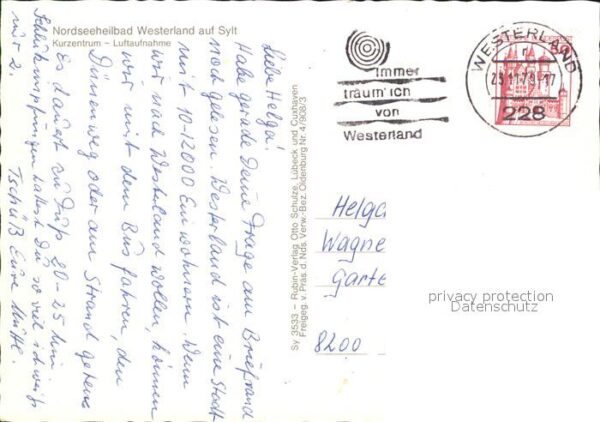 Nordseeheilbad Westerland auf Sylt
Kurzentrum – Luftaufnahme
Liebe Helga!
Habe gerade Deine Frage am Briefrand
noch gelesen. Westerland ist eine Stadt
mit 10-12000 Einwohnern. Wenn
wir nach Westerland wollen, können
wir mit dem Bus fahren, den
Dünenweg oder am Strand gehen.
Es dauert zu Fuß 20-25 Min
hattest Du so viel
mit 2. Tschüß Eure
Sy 3533 – Rubin-Verlag Otto Schulze, Lübeck und Cuxhaven
Freigeg. v. Präs. d. Nds. Verw.-Bez. Oldenburg Nr. 4/908/3
immer
träum' ich
von
Westerland
WESTERLAND
228
Helga
Wagne
Garte
8200
privacy protection
Datenschutz